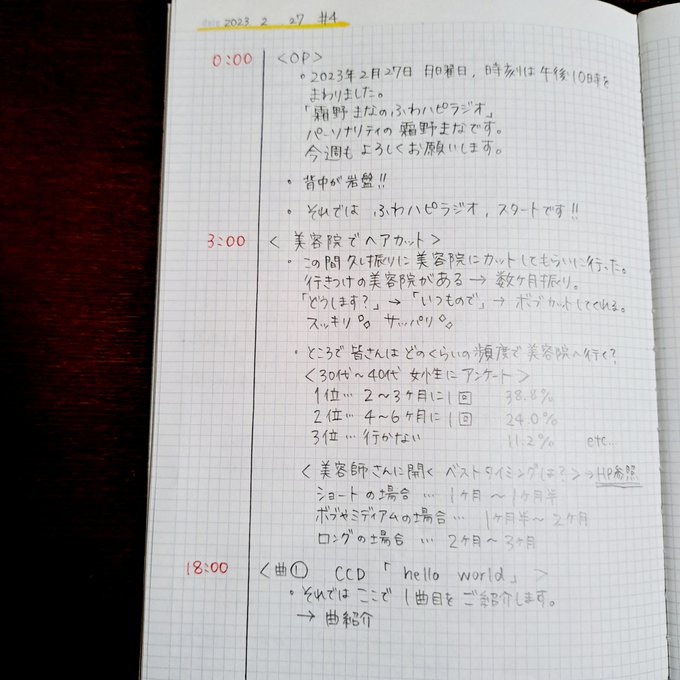 date 2023 2 27 #4
0:00 <OP>
・2023年2月27日 月曜日、時刻は午後10時を
まわりました。
「霜野まなのふわハピラジオ」
パーソナリティの霜野まなです。
今週もよろしくお願いします。
・背中が岩盤!!
・それでは ふわハピラジオ、スタートです!!
3:00 <美容院でヘアカット>
・この間久し振りに美容院にカットしてもらいに行った。
行きつけの美容院がある→数ヶ月振り。
「どうします?」→「いつもので」→ボブカットしてくれる。
スッキリ サッパリ
・ところで皆さんはどのくらいの頻度で美容院へ行く?
<30代〜40代 女性にアンケート>
1位… 2〜3ヶ月に1回 38.8%
2位… 4〜6ヶ月に1回 24.0%
3位… 行かない 11.2% etc...
<美容師さんに聞く ベストタイミングは?>→HP参照
ショートの場合 … 1ヶ月〜1ヶ月半
ボブやミディアムの場合… 1ヶ月半〜2ヶ月
ロングの場合 … 2ヶ月〜3ヶ月
18:00 <曲① CCD「hello world」>
・それではここで1曲目をご紹介します。
→ 曲紹介